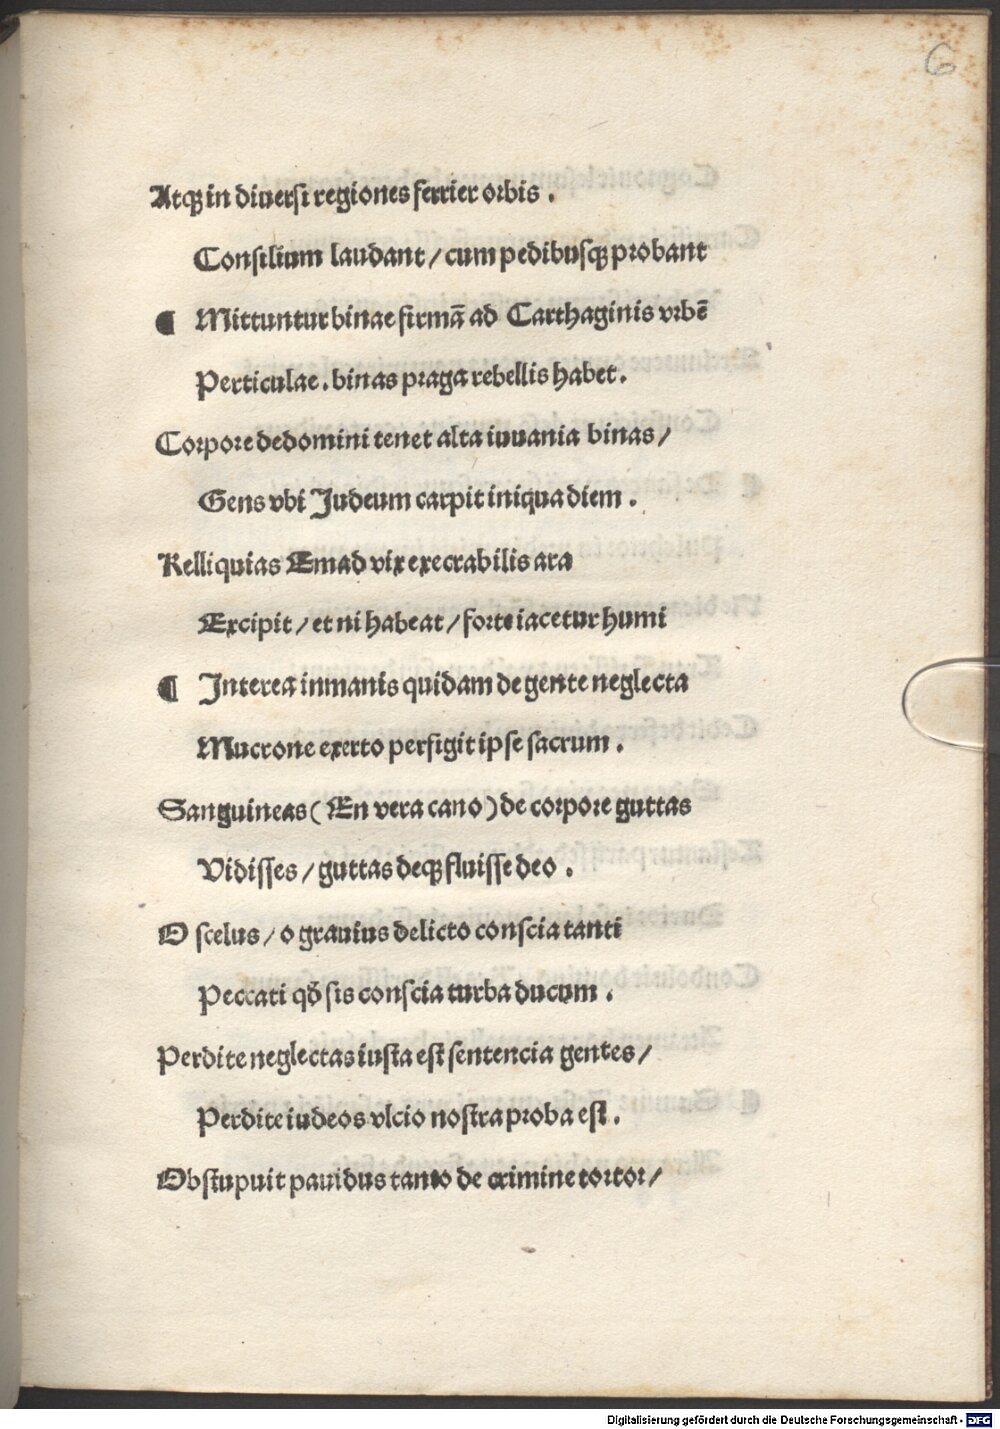 6
Atqꝫ in diuersi regiones ferrier orbis .
Consilium laudant / cum pedibusqꝫ probant
¶ Mittuntur binae firmā ad Carthaginis vrbē
Perticulae . binas praga rebellis habet .
Corpore dedomini tenet alta iuuania binas /
Gens vbi Judeum carpit iniqua diem .
Relliquias Emad vix execrabilis ara
Excipit / et ni habeat / forte iacetur humi
¶ Interea inmanis quidam de gente neglecta
Mucrone exerto perfigit ipse sacrum .
Sanguineas ( En vera cano ) de corpore guttas
Vidisses / guttas deqꝫ fluisse deo .
O scelus / o grauius delicto conscia tanti
Peccati qđ sis conscia turba ducum .
Perdite neglectas iusta est sentencia gentes /
Perdite iudeos vlcio nostra proba est .
Obstupuit pauidus tanto de crimine tortor /
Digitalisierung gefördert durch die Deutsche Forschungsgemeinschaft - DFG